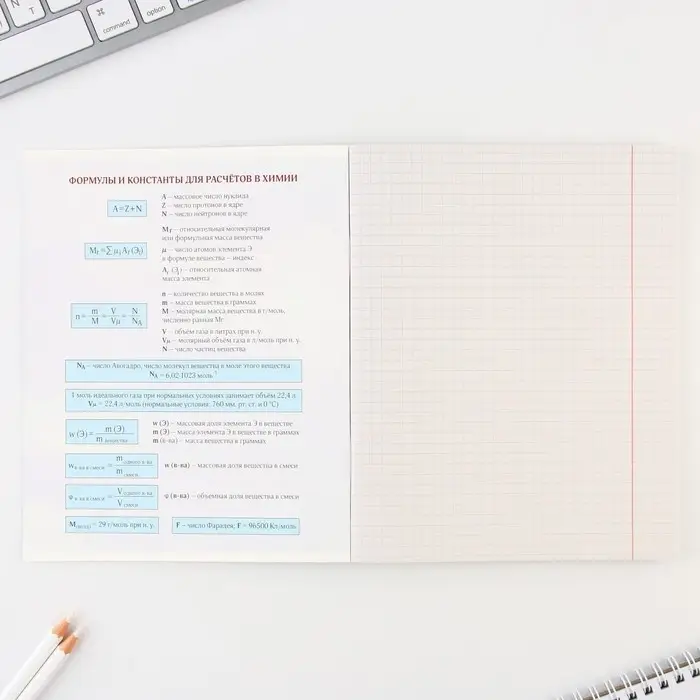 N
T
⌘
command
option
command
ФОРМУЛЫ И КОНСТАНТЫ ДЛЯ РАСЧЁТОВ В ХИМИИ
A=Z+N
A – массовое число нуклида
Z – число протонов в ядре
N – число нейтронов в ядре
Mr = ∑ μi Ar (Эi)
Mr – относительная молекулярная
или формульная масса вещества
μ – число атомов элемента Э
в формуле вещества – индекс
Ar (Эi) – относительная атомная
масса элемента
n = m/M = V/Vμ = N/NA
n – количество вещества в молях
m – масса вещества в граммах
M – молярная масса вещества в г/моль,
численно равная Mr
V – объём газа в литрах при н. у.
Vμ – молярный объём газа в л/моль при н. у.
N – число частиц вещества
NA – число Авогадро, число молекул вещества в моле этого вещества
NA = 6,02·1023 моль⁻¹
1 моль идеального газа при нормальных условиях занимает объём 22,4 л
Vμ = 22,4 л/моль (нормальные условия: 760 мм. рт. ст. и 0 °C)
w (Э) = m (Э) / m вещества
w (Э) – массовая доля элемента Э в веществе
m (Э) – масса элемента Э в веществе в граммах
m (в-ва) – масса вещества в граммах
w в-ва в смеси = m одного в-ва / m смеси
w (в-ва) – массовая доля вещества в смеси
φ в-ва в смеси = V одного в-ва / V смеси
φ (в-ва) – объемная доля вещества в смеси
M(возд.) = 29 г/моль при н. у.
F – число Фарадея, F = 96500 Кл/моль